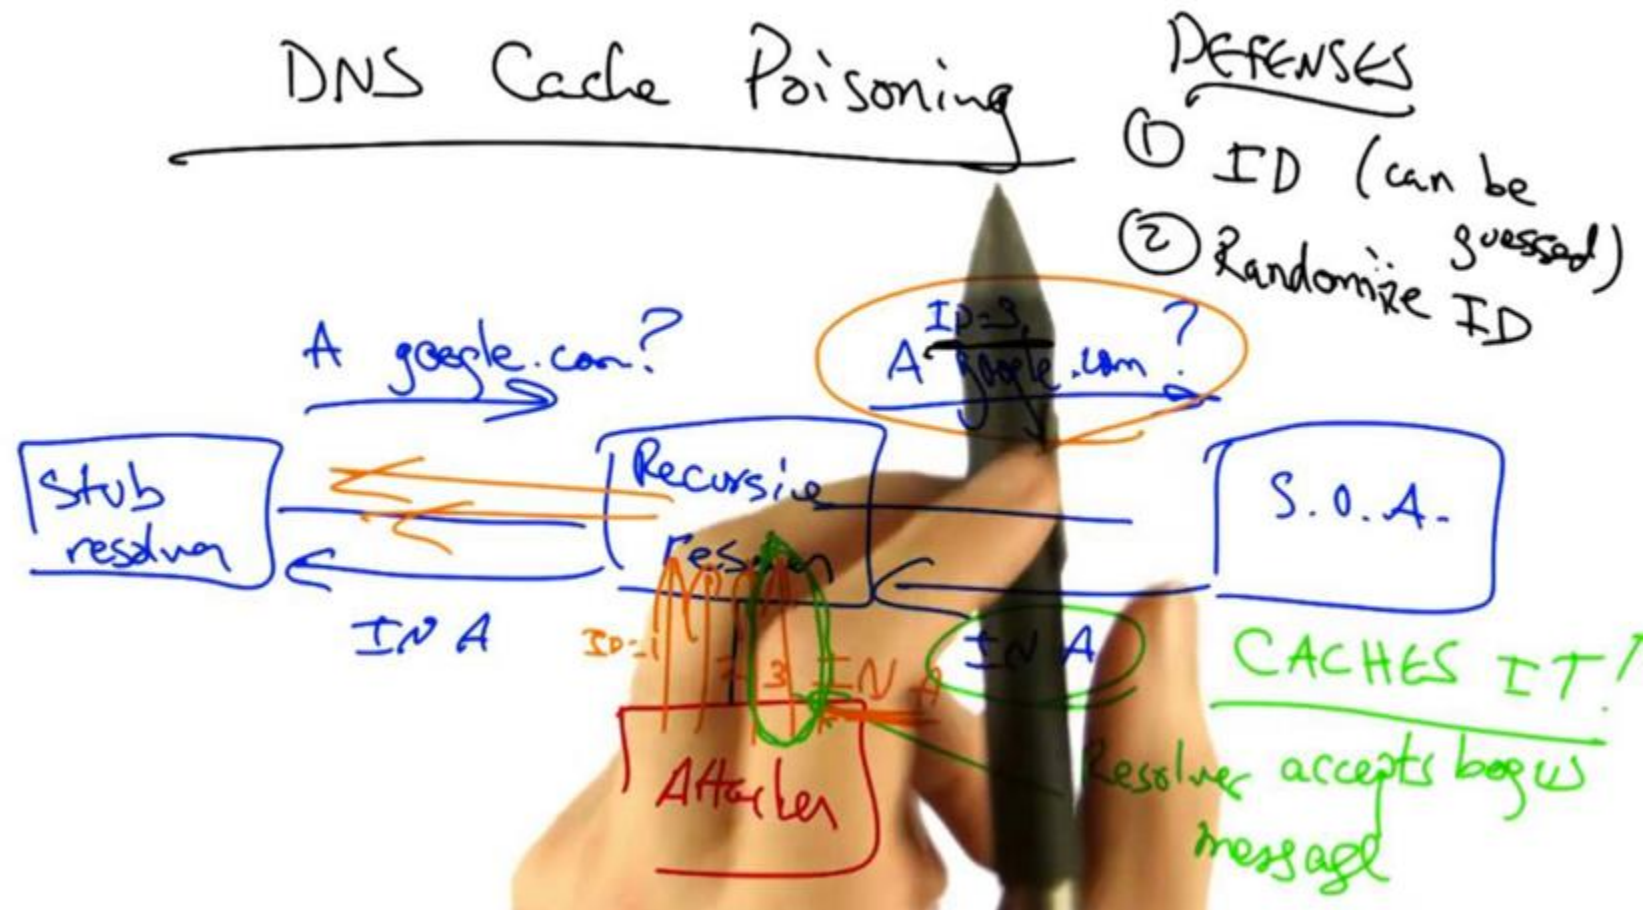 DNS Cache Poisoning
DEFENSES
① ID (can be
guessed)
② Randomize ID
A google.com?
ID=3,
A google.com?
Stub
resolver
Recursive
resolver
S.O.A.
IN A
ID=1
2 3 IN A
IN A
CACHES IT!
Attacker
Resolver accepts bogus
message